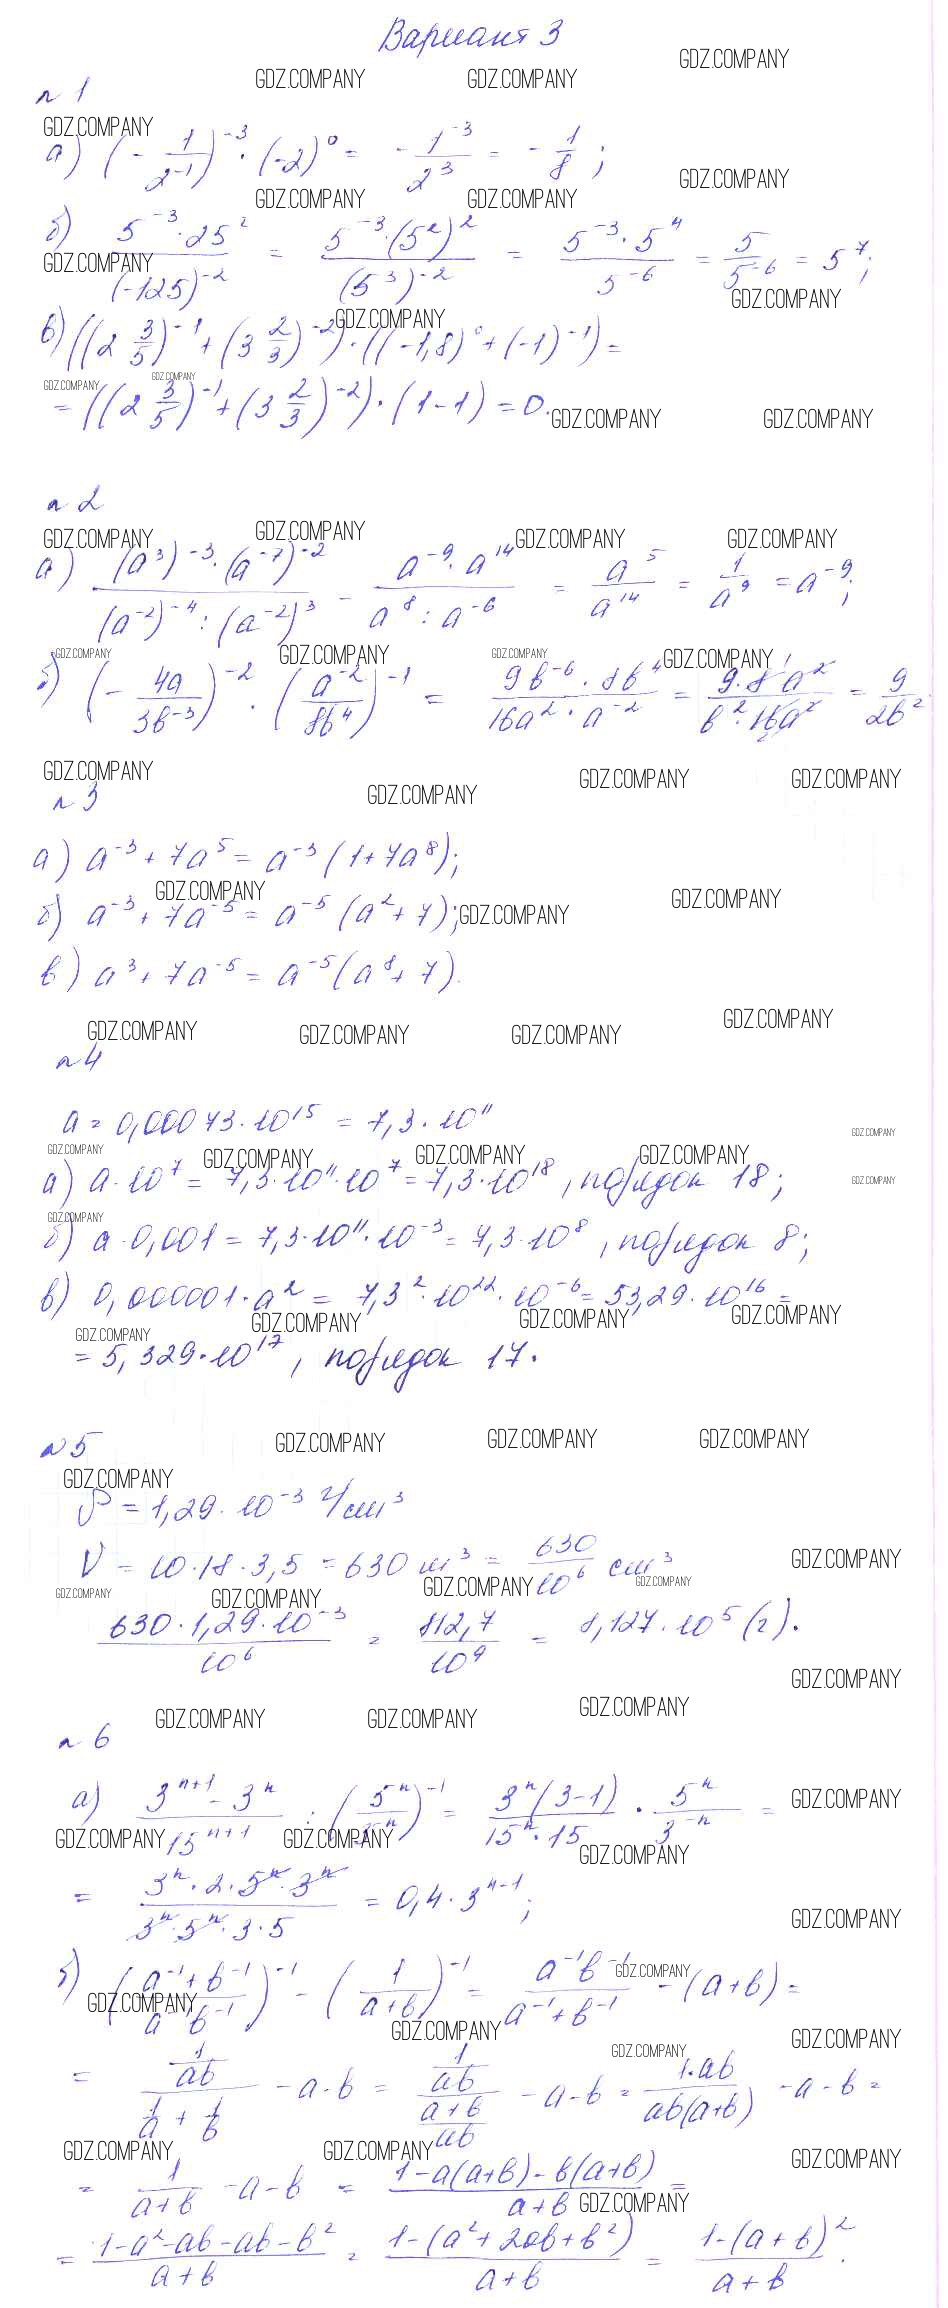 Вариант 3
GDZ.COMPANY GDZ.COMPANY GDZ.COMPANY
n 1
GDZ.COMPANY
а) (-1/2^-1)^-3 · (-2)^0 = -1^-3/2^3 = -1/8;
GDZ.COMPANY GDZ.COMPANY GDZ.COMPANY
б) 5^-3·25^2/(-125)^-2 = 5^-3·(5^2)^2/(5^3)^-2 = 5^-3·5^4/5^-6 = 5/5^-6 = 5^7;
GDZ.COMPANY GDZ.COMPANY
GDZ.COMPANY
в) ((2 3/5)^-1 + (3 2/3)^-2)·((-1,8)^0 + (-1)^-1) =
GDZ.COMPANY GDZ.COMPANY
= ((2 3/5)^-1 + (3 2/3)^-2)·(1-1) = 0.
GDZ.COMPANY GDZ.COMPANY
n 2
GDZ.COMPANY GDZ.COMPANY GDZ.COMPANY GDZ.COMPANY
а) (a^3)^-3·(a^-7)^-2/(a^-2)^-4:(a^-2)^3 - a^-9·a^14/a^8:a^-6 = a^5/a^14 = 1/a^9 = a^-9;
GDZ.COMPANY GDZ.COMPANY GDZ.COMPANY GDZ.COMPANY
б) (-4a/3b^-3)^-2 · (a^-2/8b^4)^-1 = 9b^-6·8b^4/16a^2·a^-2 = 9·8a^2/b^2·16a^2 = 9/2b^2.
GDZ.COMPANY GDZ.COMPANY GDZ.COMPANY GDZ.COMPANY
n 3
а) a^-3 + 7a^5 = a^-3 (1+7a^8);
GDZ.COMPANY GDZ.COMPANY
б) a^-3 + 7a^-5 = a^-5 (a^2+7);
GDZ.COMPANY
в) a^3 + 7a^-5 = a^-5 (a^8+7).
GDZ.COMPANY GDZ.COMPANY GDZ.COMPANY GDZ.COMPANY
n 4
a = 0,00073·10^15 = 7,3·10^11
GDZ.COMPANY
GDZ.COMPANY GDZ.COMPANY GDZ.COMPANY GDZ.COMPANY
а) a·10^7 = 7,3·10^11·10^7 = 7,3·10^18, порядок 18;
GDZ.COMPANY
GDZ.COMPANY
б) a·0,001 = 7,3·10^11·10^-3 = 7,3·10^8, порядок 8;
в) 0,000001·a^2 = 7,3^2·10^22·10^-6 = 53,29·10^16 =
GDZ.COMPANY GDZ.COMPANY GDZ.COMPANY GDZ.COMPANY
= 5,329·10^17, порядок 17.
n 5
GDZ.COMPANY GDZ.COMPANY GDZ.COMPANY
GDZ.COMPANY
ρ = 1,29·10^-3 г/см^3
V = 10·18·3,5 = 630 м^3 = 630/10^6 см^3
GDZ.COMPANY
GDZ.COMPANY GDZ.COMPANY GDZ.COMPANY GDZ.COMPANY
630·1,29·10^-3/10^6 = 812,7/10^9 = 8,127·10^5 (г).
GDZ.COMPANY
GDZ.COMPANY GDZ.COMPANY GDZ.COMPANY
n 6
а) 3^n+1 - 3^n/15^n+1 : (5^n/3^-n)^-1 = 3^n(3-1)/15^n·15 · 5^n/3^-n =
GDZ.COMPANY
GDZ.COMPANY GDZ.COMPANY GDZ.COMPANY
= 3^n·2·5^n·3^n/3^n·5^n·3·5 = 0,4·3^n-1;
GDZ.COMPANY
б) (a^-1+b^-1/a^-1b^-1)^-1 - (1/a+b)^-1 = a^-1b^-1/a^-1+b^-1 - (a+b) =
GDZ.COMPANY
GDZ.COMPANY GDZ.COMPANY GDZ.COMPANY GDZ.COMPANY
= 1/ab/1/a + 1/b - a - b = 1/ab/a+b/ab - a - b = 1·ab/ab(a+b) - a - b =
GDZ.COMPANY GDZ.COMPANY GDZ.COMPANY
= 1/a+b - a - b = 1-a(a+b)-b(a+b)/a+b =
GDZ.COMPANY
= 1-a^2-ab-ab-b^2/a+b = 1-(a^2+2ab+b^2)/a+b = 1-(a+b)^2/a+b.